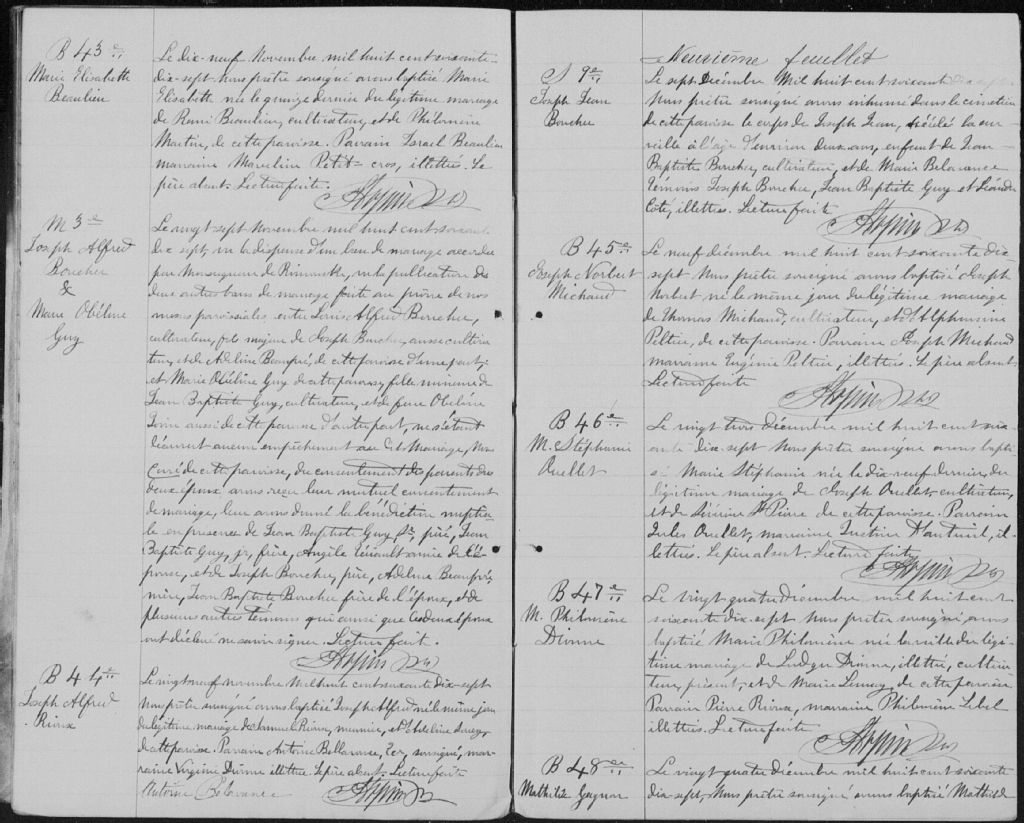 B 43e
Marie Elisabette
Beaulieu
Le dix-neuf Novembre mil huit cent soixante-
dix-sept Nous prêtre soussigné avons baptisé Marie
Elisabette née le quinze dernier du légitime mariage
de Remi Beaulieu, cultivateur, et de Philomène
Martin, de cette paroisse. Parrain Israel Beaulieu
marraine Marceline Petit-cros, illettrés. Le
père absent. Lecture faite.
M 3e
Joseph Alfred
Boucher
&
Marie Obéline
Guy
Le vingt-sept Novembre mil huit cent soixante
dix sept, vu la dispense d'un ban de mariage accordée
par Monseigneur de Rimouski, vu la publication de
deux autres bans de mariage faite au prône de nos
messes paroissiales entre Louis Alfred Boucher,
cultivateur, fils majeur de Joseph Boucher, aussi cultiva-
teur, et de Adeline Beaupré, de cette paroisse d'une part;
et Marie Obéline Guy de cette paroisse, fille mineure de
Jean Baptiste Guy, cultivateur, et de feue Obéline
aussi de cette paroisse d'autre part, ne s'étant
découvert aucun empêchement au dit Mariage, Nous
Curé de cette paroisse, du consentement des parents des
deux époux avons reçu leur mutuel consentement
de mariage, leur avons donné la bénédiction nuptia-
le en présence de Jean Baptiste Guy Sr, père, Jean
Baptiste Guy, jr, frère, Angèle amie de l'é-
pouse, et de Joseph Boucher, père, Adeline Beaupré,
mère, Jean Baptiste Boucher frère de l'époux, et de
plusieurs autres témoins qui ainsi que les deux époux
ont déclaré ne savoir signer. Lecture faite.
B 44e
Joseph Alfred
Rioux
Le vingt neuf novembre mil huit cent soixante dix-sept
Nous prêtre soussigné avons baptisé Joseph Alfred né le même jour
du légitime mariage de Samuel Rioux, meunier, et d'Adeline
de cette paroisse. Parrain Antoine Bellavance, soussigné, mar-
raine Virginie Dionne illettrée. Le père absent. Lecture faite
Antoine Belavance
Neuvième feuillet
S 9e
Joseph Jean
Boucher
Le sept décembre Mil huit cent soixante dix sept
Nous prêtre soussigné avons inhumé dans le cimetière
de cette paroisse le corps de Joseph Jean, décédé la sur-
veille à l'âge d'environ deux ans, enfant de Jean
Baptiste Boucher, cultivateur, et de Marie Belavance
Témoins Joseph Boucher, Jean Baptiste Guy et Léandre
Coté, illettrés. Lecture faite
B 45e
Joseph Norbert
Michaud
Le neuf décembre mil huit cent soixante dix-
sept Nous prêtre soussigné avons baptisé Joseph
Norbert né le même jour du légitime mariage
de Thomas Michaud, cultivateur, et d'Alphonsine
Peltier, de cette paroisse. Parrain Joseph Michaud
marraine Eugénie Peltier, illettrés. Le père absent
Lecture faite
B 46e
M. Stéphanie
Ouellet
Le vingt trois décembre mil huit cent soix-
ante dix-sept Nous prêtre soussigné avons bapti-
sé Marie Stéphanie née le dix-neuf dernier du
légitime mariage de Joseph Ouellet, cultivateur,
et de St Pierre de cette paroisse. Parrain
Jules Ouellet, marraine Justine D'Auteuil, il-
lettrés. Le père absent. Lecture faite
B 47e
M. Philomène
Dionne
Le vingt quatre décembre mil huit cent
soixante dix-sept Nous prêtre soussigné avons
baptisé Marie Philomène née la veille du légi-
time mariage de Ludger Dionne, illettré, cultiva-
teur, présent, et de Marie Lemay de cette paroisse
Parrain Pierre Rioux, marraine Philomène Lebel
illettrés. Lecture faite
B 48e
Mathilde Gagnon
Le vingt quatre décembre mil huit cent soixante
dix-sept, Nous prêtre soussigné avons baptisé Mathilde